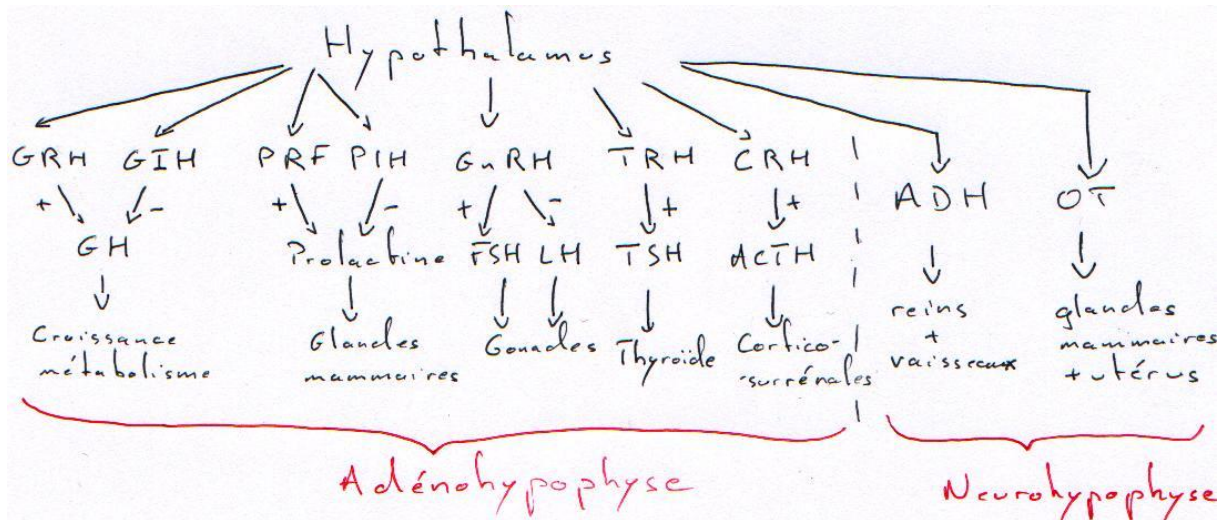 Hypothalamus
GRH GIH PRF PIH GnRH TRH CRH ADH OT
+ - + - + - + +
GH Prolactine FSH LH TSH ACTH
Croissance métabolisme
Glandes mammaires
Gonades
Thyroïde
Cortico-
-surrénales
reins
+
vaisseaux
glandes
mammaires
+ utérus
Adénohypophyse
Neurohypophyse